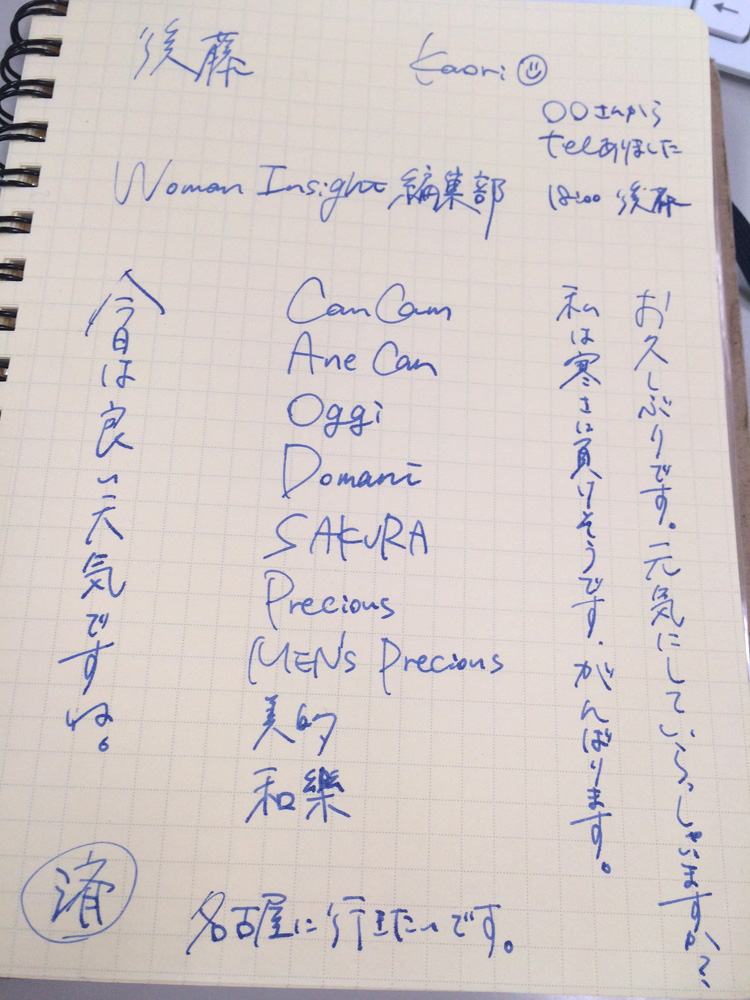 後藤
Kaori ☺
〇〇さんから
telありました
18:00 後藤
Woman Insight 編集部
お久しぶりです。元気にしていらっしゃいますか?
私は寒さに負けそうです。がんばります。
CanCam
AneCan
Oggi
Domani
SAKURA
Precious
MEN's Precious
美的
和樂
今日は良い天気ですね。
済
名古屋に行きたいです。